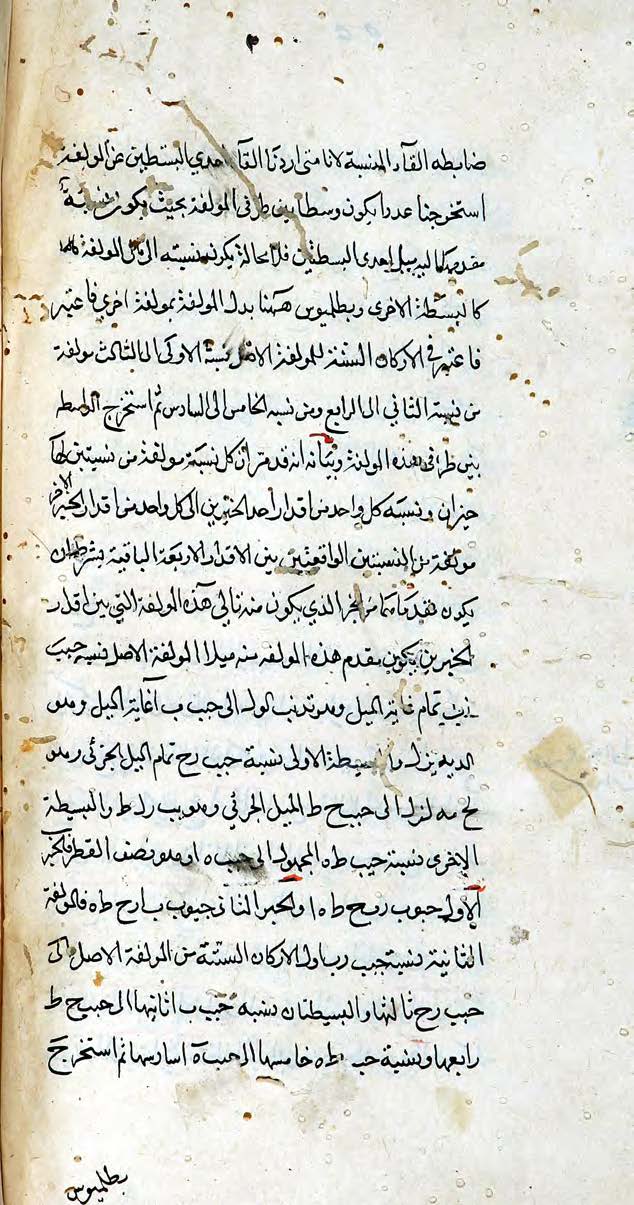 ضابطه القاء النسبة لانا متى اردنا القاء احدي البسيطتين عن المولفة
استخرجنا عددا يكون وسطا بين طرفى المولفة بحيث يكون نسبة
مقدمها اليه احدى البسيطتين فلا محالة يكون نسبته الى تالى المولفة
كالبسيطة الاخرى وبطلميوس ههنا بدل المولفة بمولفة اخرى فاعتبر
فاعتبر فى الاركان الستة للمولفة الاصل نسبة الاولى الى الثالث مولفة
من نسبة الثاني الى الرابع ومن نسبة الخامس الى السادس ثم استخرج الواسطه
بين طرفى هذه المولفة وبيانه انه قد مر ان كل نسبة مولفة من نسبتين لها
حيزان ونسبة كل واحد من اقدار احد الحيزين الى كل واحد من اقدار الحيز الاخر
مولفة من النسبتين الواقعتين بين الاقدار الاربعة الباقية بشرط ان
يكون مقدماهما من الحيز الذي يكون منه تالي هذه المولفة التي بين اقدار
الحيزين يكون مقدم هذه المولفه منه مثلا المولفة الاصل نسبة جيب
تمام غاية الميل وهو الى جيب ب ا غاية الميل وهو
والبسيطة الاولى نسبة جيب رح تمام الميل الجزئى وهو
الى جيب ح ط الميل الجزئي وهو والبسيطة
الاخرى نسبة جيب ط ه المجهول الى جيب ه ا وهو نصف القطر فالحيز
الاول جيوب ط ه ا والحيز الثانى جيوب ب ا رح ط ه فالمولفة
الثانية نسبة جيب اول الاركان الستة من المولفة الاصل الى
جيب رح ثالثها والبسيطتان نسبة جيب ب ا ثانيها الى جيب ح ط
رابعها ونسبة جيب ط ه خامسها الى جيب ه ا سادسها ثم استخرج
بطلميوس